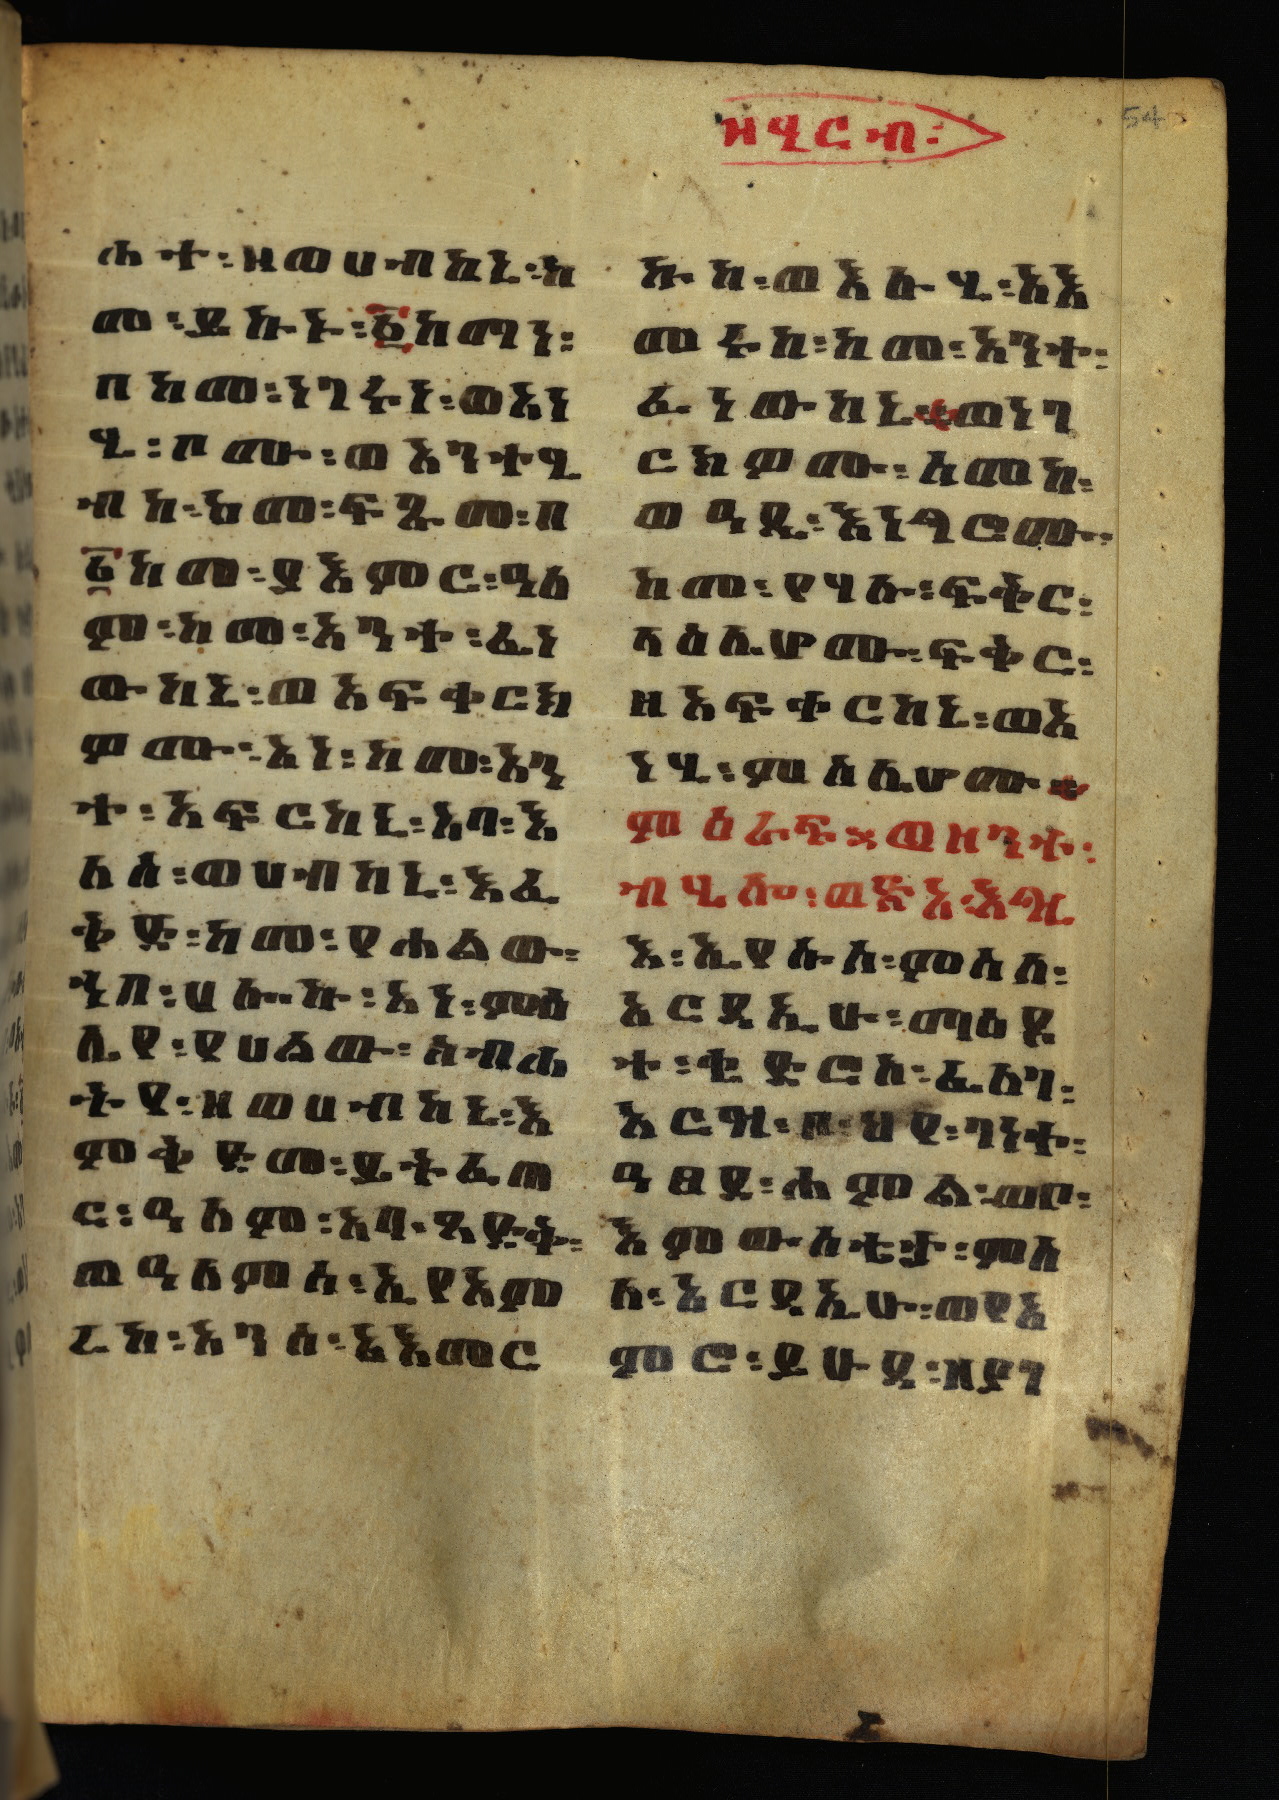 ዘዓርብ፡
54
ሐተ፡ዘወሀብከኒ፡ከ
መ፡ይኩኑ፡፩ከማነ፡
በከመ፡ነገሩነ፡ወአነ
ሂ፡ቦሙ፡ወአንተሂ
ብከ፡ከመ፡ፍጹመ፡በ
፩ከመ፡ያእምር፡ዓለ
ም፡ከመ፡አንተ፡ፈነ
ውከኒ፡ወአፍቀርክ
ምሙ፡አነ፡ከመ፡አን
ተ፡አፍርከኒ፡አባ፡እ
ለለ፡ወሀብከኒ፡እፈ
ቅድ፡ከመ፡የሐልው፡
ኀበ፡ሀሎኩ፡አነ፡ምስ
ሌየ፡የሀልው፡ስብሐ
ትየ፡ዘወሀብከኒ፡እ
ምቅድመ፡ይትፈጠ
ር፡ዓለም፡አባ፡ጻድቅ፡
ወዓለምሰ፡ኢየአም
ረከ፡አንሰ፡አአምር
ኩከ፡ወእሉሂ፡አእ
መሩከ፡ከመ፡አንተ፡
ፈነውከኒ፡ወነገ
ርክምሙ፡ለመከ፡
ወዓዲ፡እነግሮሙ፡
ከመ፡የሃሉ፡ፍቅር፡
ላዕሌሆሙ፡ፍቅር፡
ዘአፍቀርከኒ፡ወአ
ነሂ፡ምስሌሆሙ።
ምዕራፍ፡ወዘንተ፡
ብሂሎ፡ወፅአ፡እግዚ
እ፡ኢየሱስ፡ምስለ፡
አርዳኢሁ፡ማዕዶ
ተ፡ቄድሮስ፡ፈለገ፡
አርዝ፡ኀበ፡ሀየ፡ገነት፡
ዓፀደ፡ሐምል፡ወቦ፡
እምውስቴታ፡ምስ
ለ፡አርዳኢሁ፡ወየአ
ምሮ፡ይሁዳ፡ዘያገ